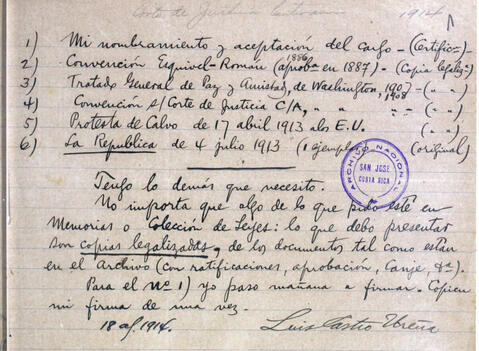 Corte de Justicia Centroam 1914 1
1) Mi nombramiento y aceptación del cargo - (Certific-)
2) Convención Esquivel-Román (1886 aprob- en 1887- (Copia legaliz-)
3) Tratado General de Paz y Amistad, de Washington, 1907 - ( " " )
4) Convención s/ Corte de Justicia C/A, " " 1908 - ( " " )
5) Protesta de Calvo de 17 abril 1913 a los E.U. ( " " )
6) La Republica de 4 julio 1913 (1 ejemplar) (original)
ARCHIVO NACIONAL
SAN JOSE
COSTA RICA
Tengo lo demás que necesito.
No importa que algo de lo que pido esté en
Memorias o Colección de Leyes: lo que debo presentar
son copias legalizadas, de los documentos tal como están
en el Archivo (con ratificaciones, aprobación, Canje, &ª).
Para el nº 1) yo paso mañana a firmar. Copien
mi firma de una vez.
18 ag. 1914. Luis Castro Ureña